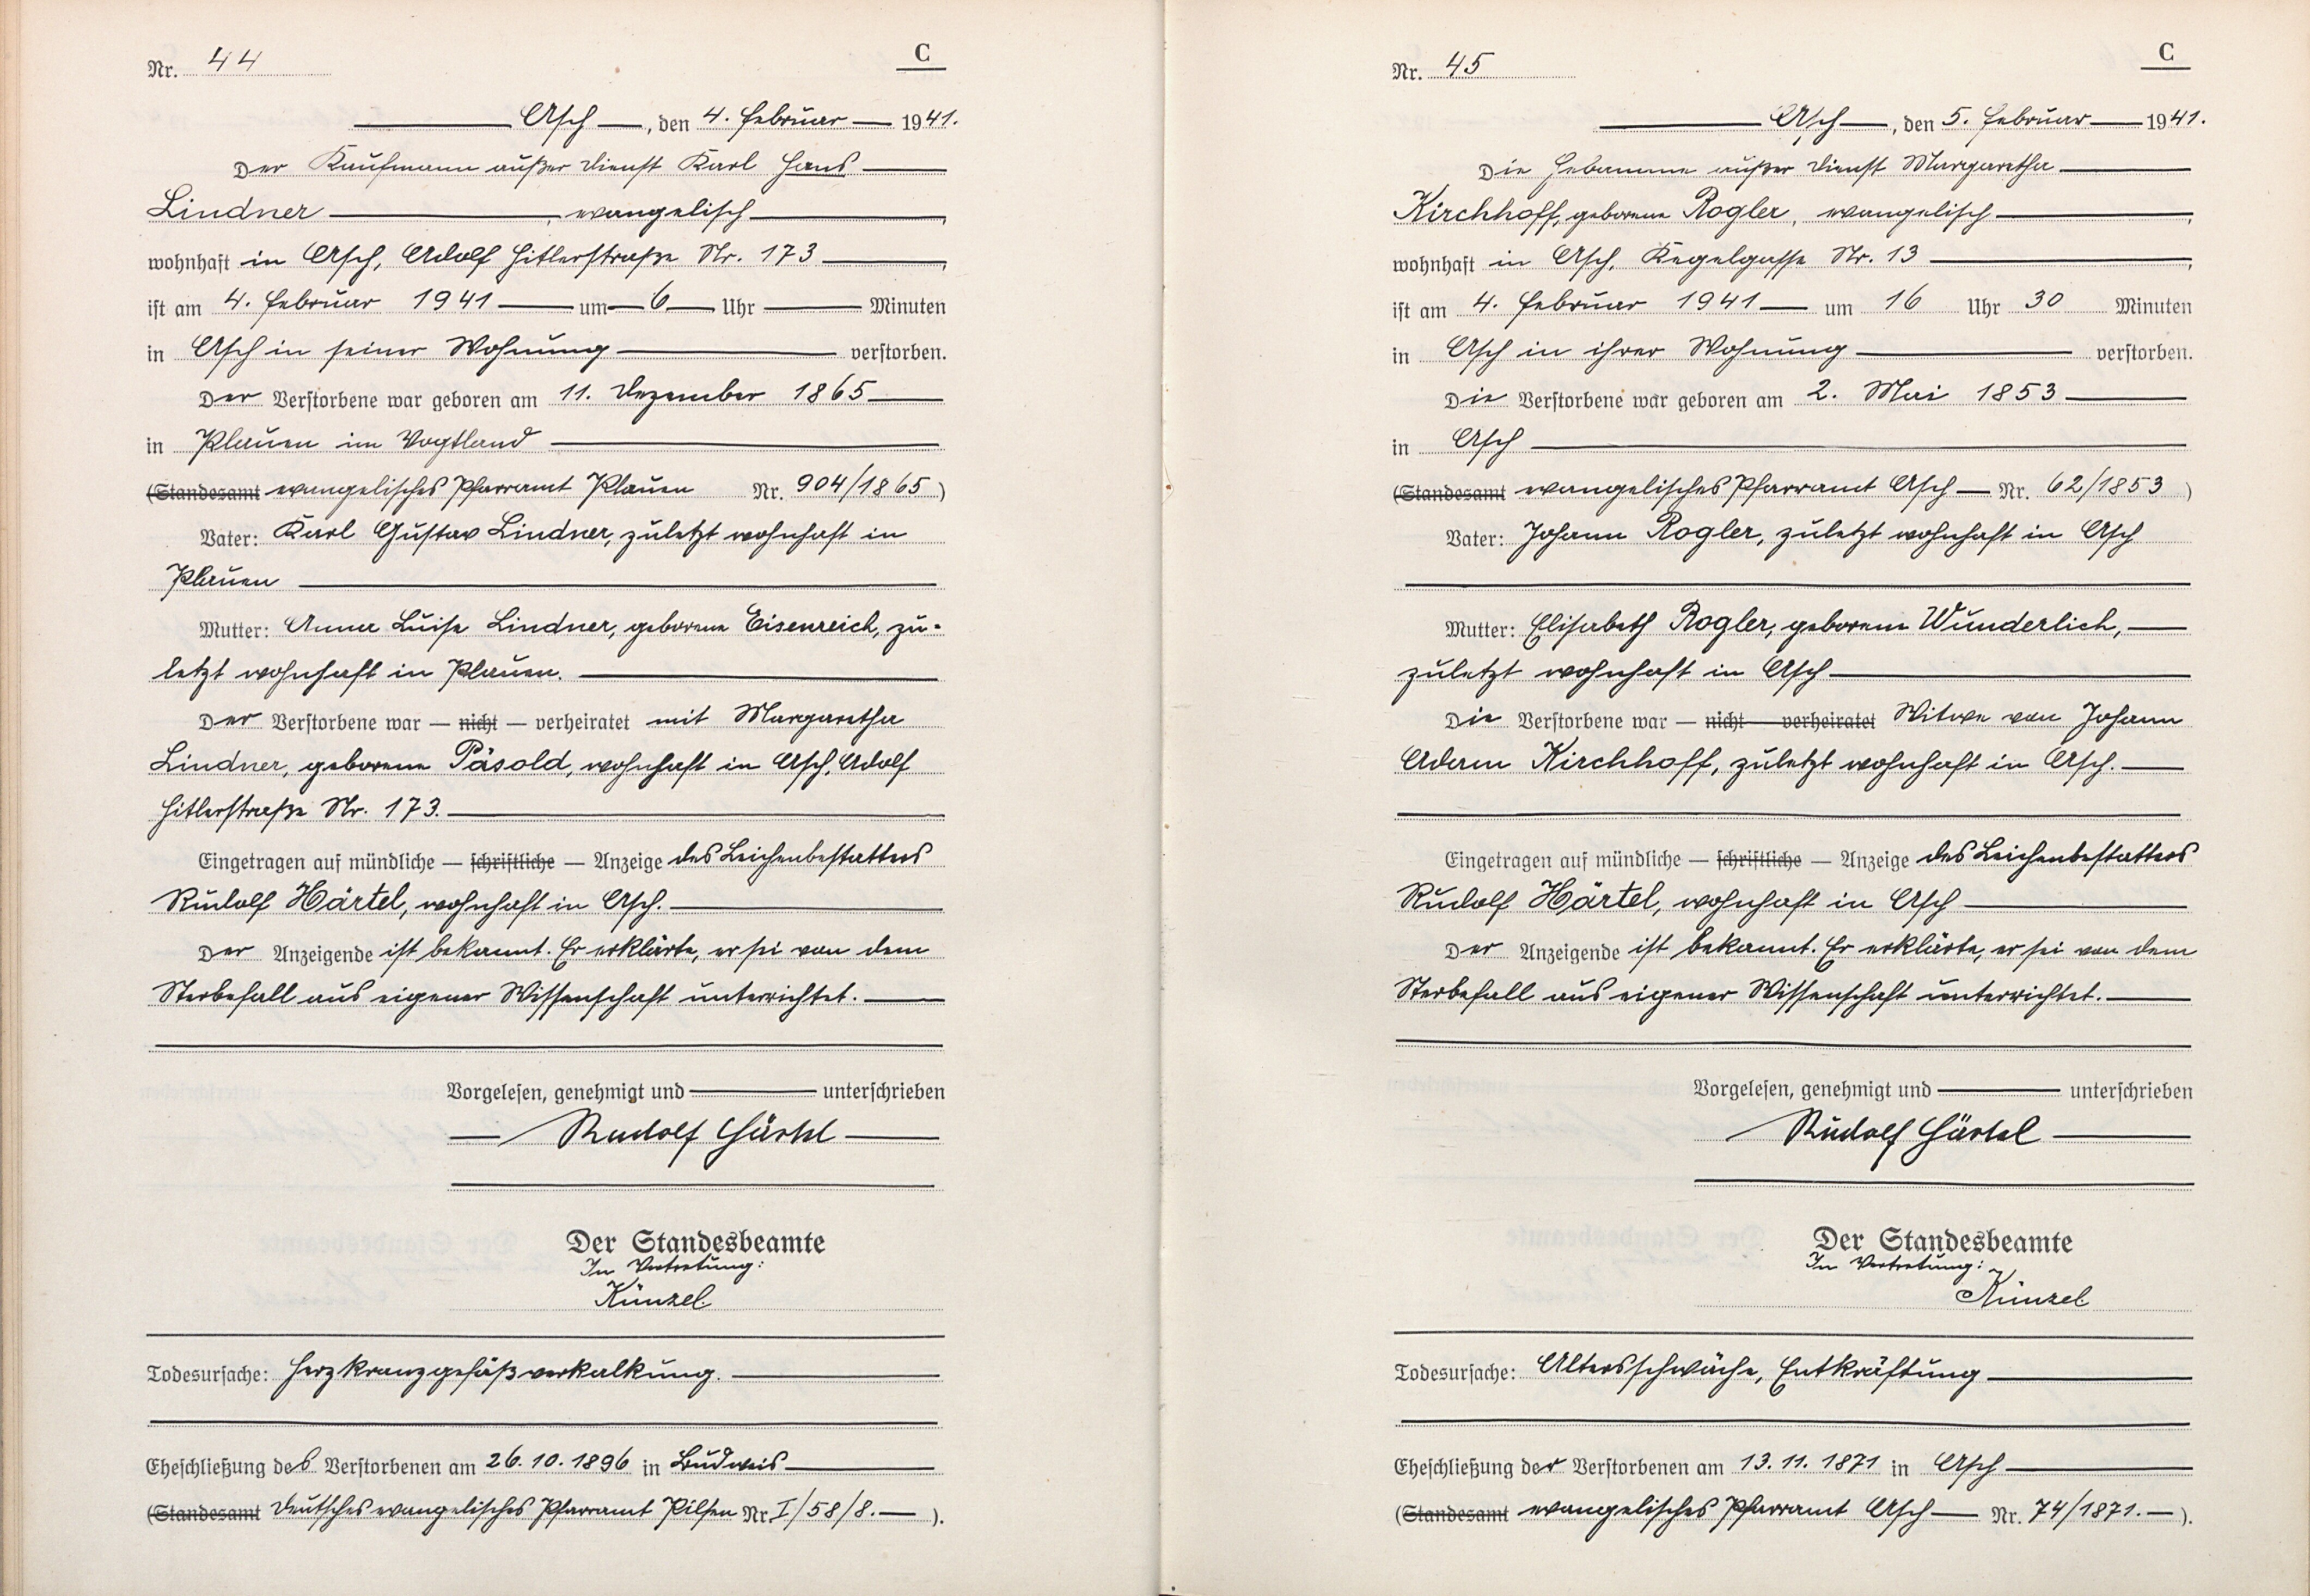 Nr. 44
C
Asch, den 4. Februar 1941.
Der Kaufmann außer Dienst Karl Hans
Lindner, evangelisch,
wohnhaft in Asch, Adolf Hitlerstraße Nr. 173,
ist am 4. Februar 1941 um 6 Uhr Minuten
in Asch in seiner Wohnung verstorben.
Der Verstorbene war geboren am 11. Dezember 1865
in Plauen im Vogtland
(Standesamt evangelisches Pfarramt Plauen Nr. 904/1865)
Vater: Karl Gustav Lindner, zuletzt wohnhaft in
Plauen
Mutter: Anna Luise Lindner, geborene Eisenreich, zu-
letzt wohnhaft in Plauen.
Der Verstorbene war — nicht — verheiratet mit Margaretha
Lindner, geborene Päsold, wohnhaft in Asch, Adolf
Hitlerstraße Nr. 173.
Eingetragen auf mündliche — schriftliche — Anzeige des Leichenbestatters
Rudolf Härtel, wohnhaft in Asch.
Der Anzeigende ist bekannt. Er erklärte, er sei von dem
Sterbefall aus eigener Wissenschaft unterrichtet.
Vorgelesen, genehmigt und unterschrieben
Rudolf Härtel
Der Standesbeamte
In Vertretung:
Künzel.
Todesursache: Herzkranzgefäßverkalkung.
Eheschließung des Verstorbenen am 26.10.1896 in Budweis
(Standesamt Deutsches evangelisches Pfarramt Pilsen Nr. I/58/8.—).
Nr. 45
C
Asch, den 5. Februar 1941.
Die Hebamme außer Dienst Margaretha
Kirchhoff, geborene Rogler, evangelisch,
wohnhaft in Asch, Kegelgasse Nr. 13,
ist am 4. Februar 1941 um 16 Uhr 30 Minuten
in Asch in ihrer Wohnung verstorben.
Die Verstorbene war geboren am 2. Mai 1853
in Asch
(Standesamt evangelisches Pfarramt Asch — Nr. 62/1853)
Vater: Johann Rogler, zuletzt wohnhaft in Asch
Mutter: Elisabeth Rogler, geborene Wunderlich,
zuletzt wohnhaft in Asch
Die Verstorbene war — nicht — verheiratet Witwe von Johann
Adam Kirchhoff, zuletzt wohnhaft in Asch.
Eingetragen auf mündliche — schriftliche — Anzeige des Leichenbestatters
Rudolf Härtel, wohnhaft in Asch
Der Anzeigende ist bekannt. Er erklärte, er sei von dem
Sterbefall aus eigener Wissenschaft unterrichtet.
Vorgelesen, genehmigt und unterschrieben
Rudolf Härtel
Der Standesbeamte
In Vertretung:
Künzel
Todesursache: Altersschwäche, Entkräftung
Eheschließung der Verstorbenen am 13.11.1871 in Asch
(Standesamt evangelisches Pfarramt Asch — Nr. 74/1871.—).